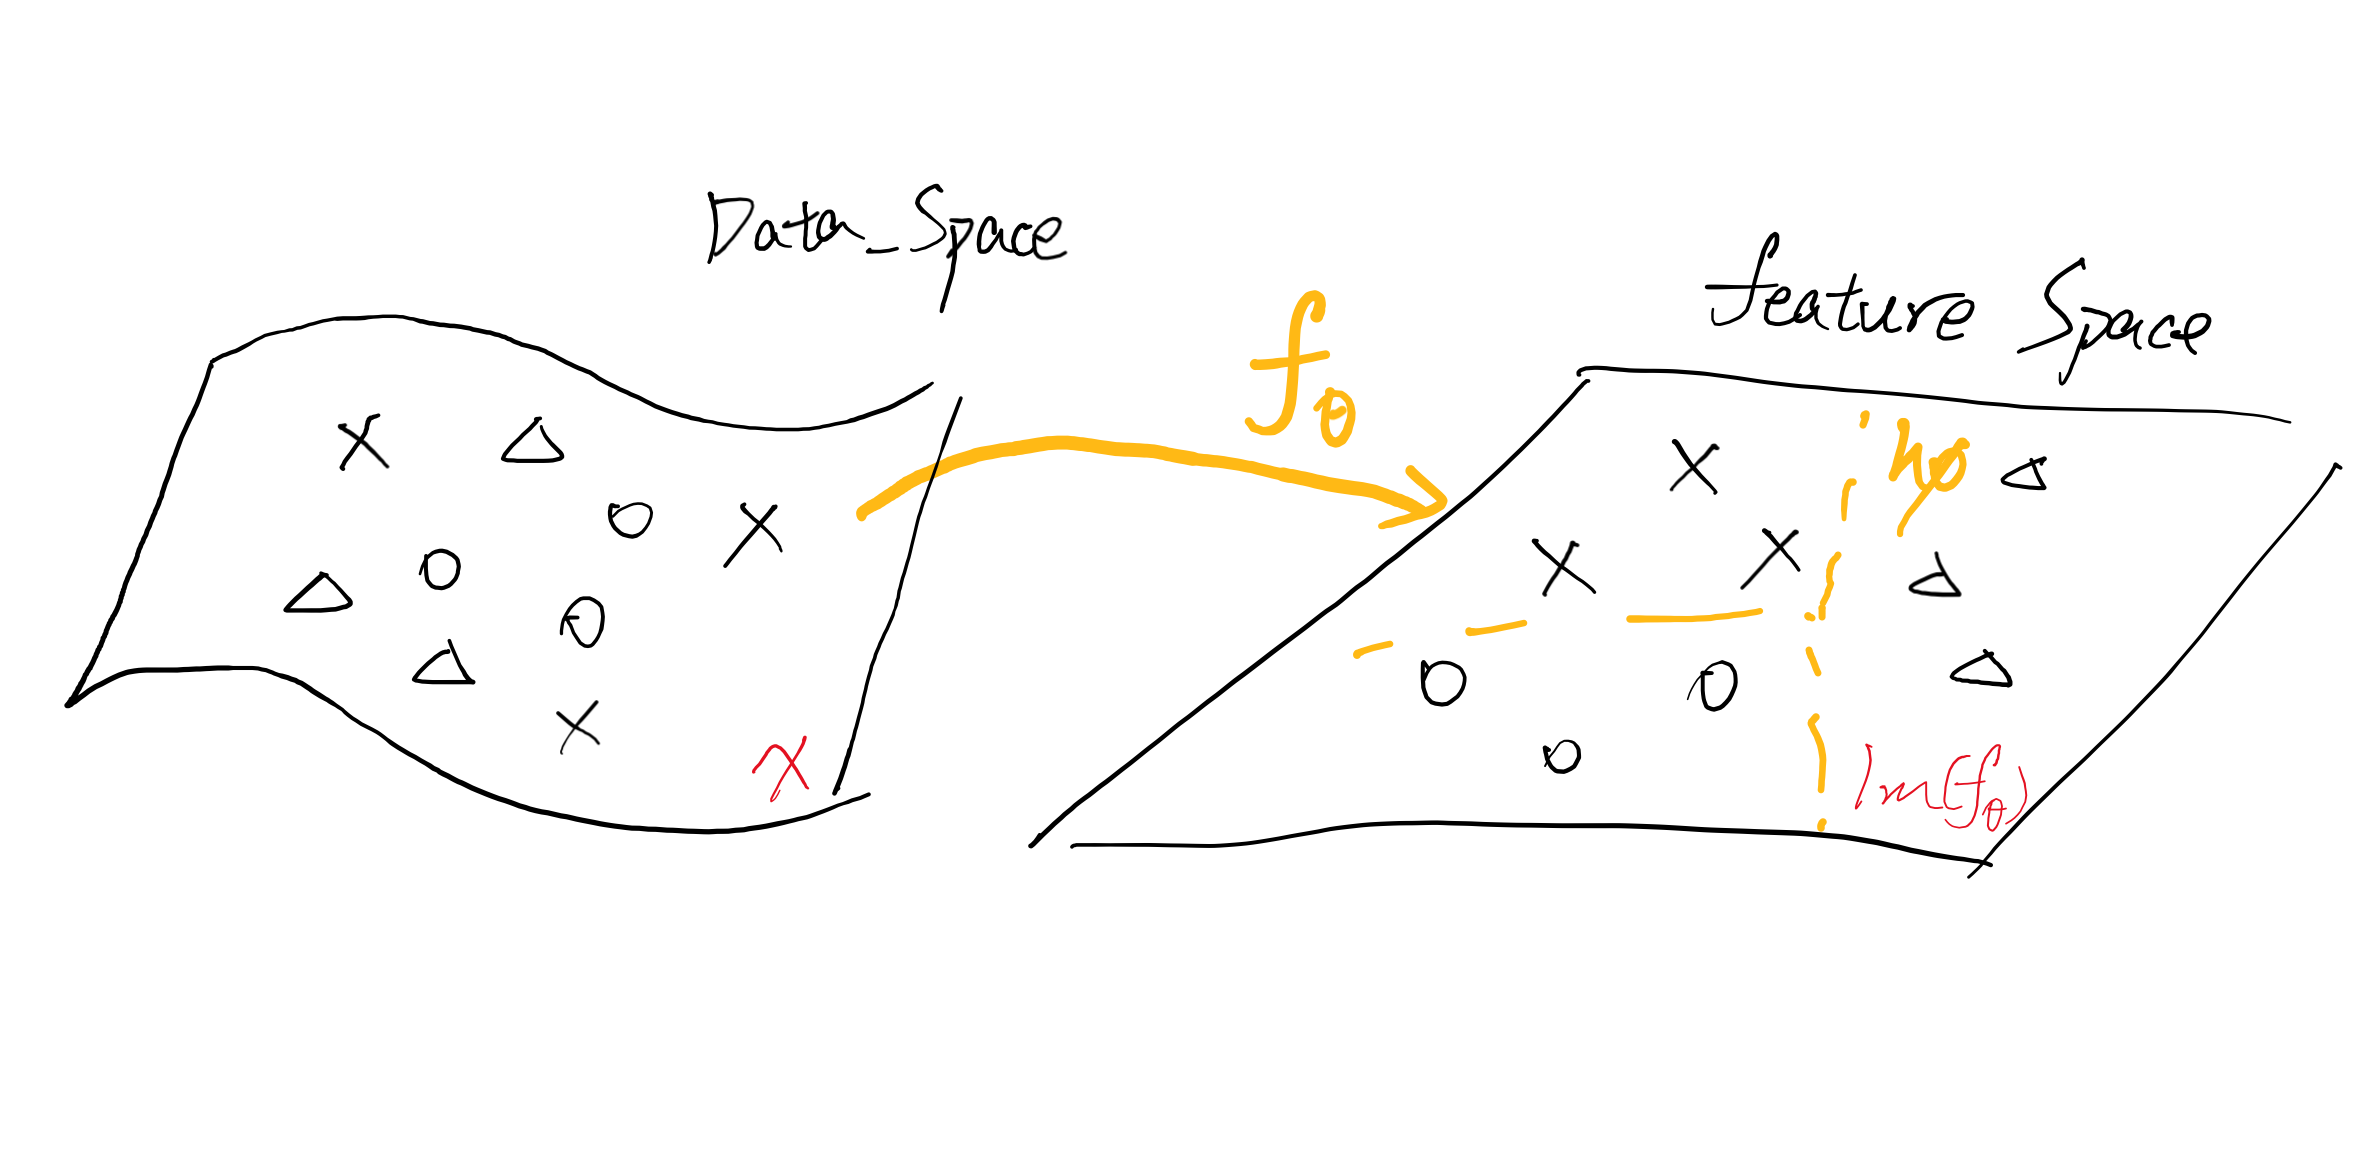 Data Space
feature Space
fθ
hφ
X
Im(fθ)